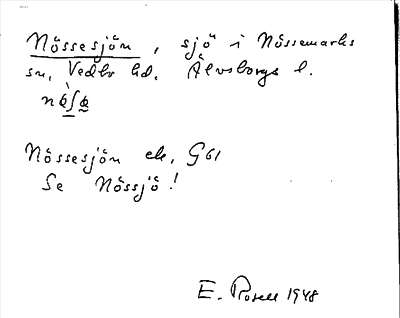 Nössesjön, sjö i Nössemarks
sn, Vedbo hd, Älvsborgs l.
Nössesjön ek, G61
Se Nössjö!
E. Rosell 1948